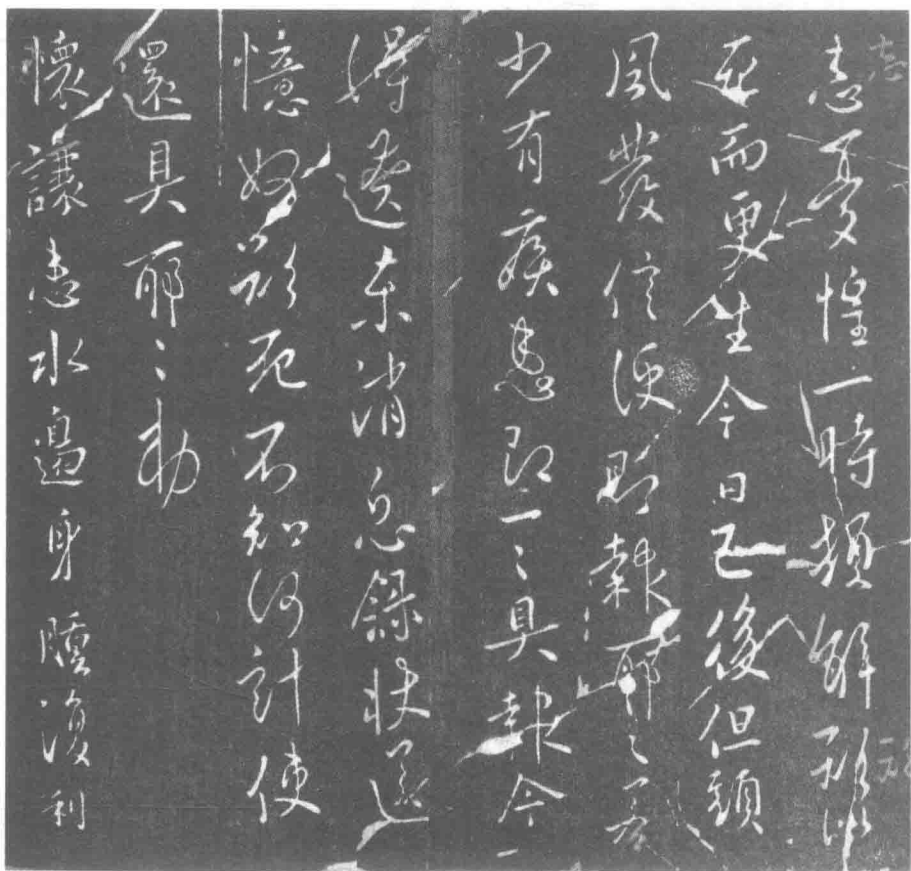 患憂惶一時頓解欲似
死而更生今日已後但頭
風發信便即報耶〻若
少有疾患即一〻具報今
得遼東消息錄狀送
憶奴欲死不知何計使
還具耶〻勅
懷讓患水邊身腫復利